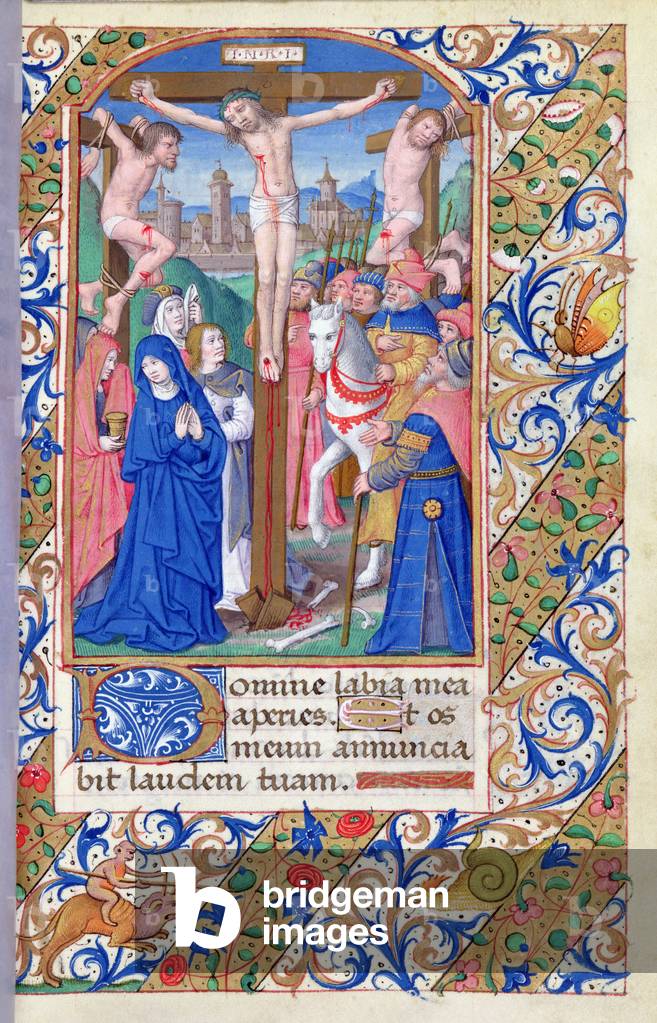 I·N·R·I
Domine labia mea
aperies. Et os
meum annuncia
bit laudem tuam.
b bridgeman
images